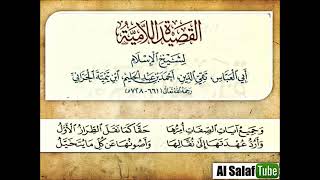 القصيدة اللامية
لشيخ الإسلام
أبي العباس، تقي الدين، أحمد بن عبد الحليم، ابن تيمية الحراني
رحمه الله تعالى (٦٦١-٧٢٨هـ)
وَجَمِيعُ آيَاتِ الصِّفَاتِ أُمِرُّهَا حَقًّا كَمَا نَقَلَ الطِّرَازُ الْأَوَّلُ
وَأَرُدُّ عُهْدَتَهَا إِلَى نُقَّالِهَا وَأَصُونُهَا عَنْ كُلِّ مَا يُتَخَيَّلُ
Al Salaf Tube